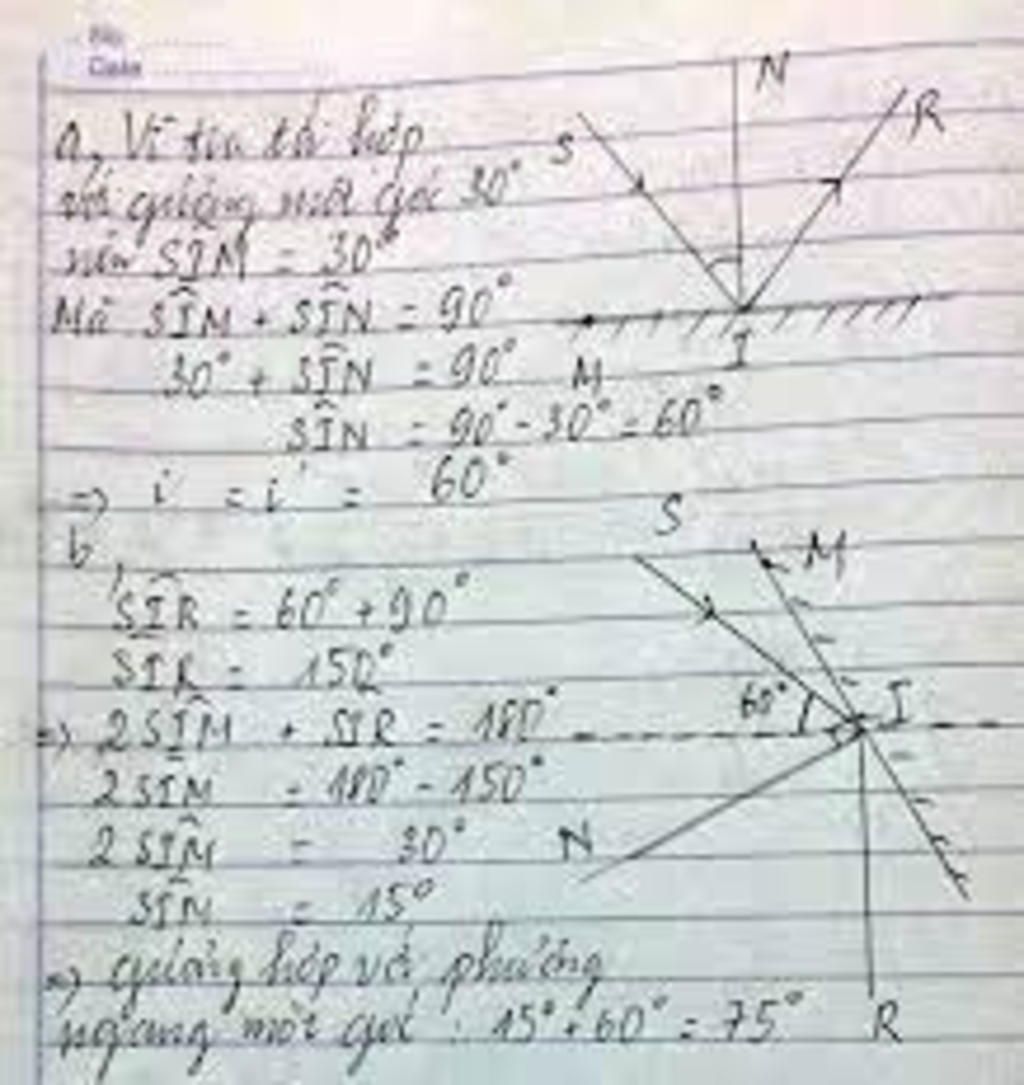 No
Date
a, Vì tia tới hợp
với gương một góc 30°
nên SÎM = 30°
Mà SÎM + SÎN = 90°
30° + SÎN = 90°
SÎN = 90° - 30° = 60°
=> i = i' = 60°
b,
SÎR = 60° + 90°
SIR = 150°
=> 2SÎM + SIR = 180°
2SIM = 180° - 150°
2SÎM = 30°
SÎM = 15°
=> gương hợp với phương
ngang một góc : 15° + 60° = 75°
S
N
R
M
I
S
M
60°
I
N
R